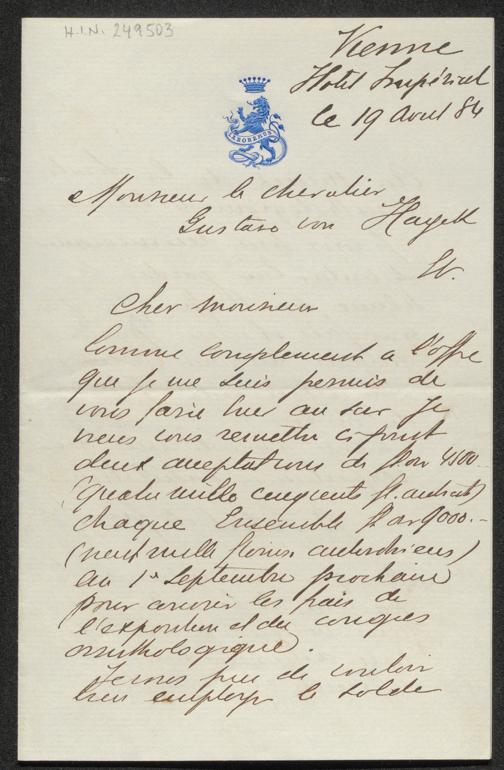 H.I.N. 249503
Vienne
Hotel Impérial
le 19 Avril 84
LABOREMUS
Monsieur le chevalier
Gustave von Hayek
W.
Cher monsieur
Comme complement a l'offre
que je me suis permis de
vous faire hier au soir je
viens vous remettre ci joint
deux acceptations de flor 4500.-
(quatre mille cinq cents fl. autrich)
chaque Ensemble fl 9000.-
(neuf mille florins autrichiens)
au 1r Septembre prochain
pour couvrir les frais de
l'exposition et du congres
ornithologique.
Je vous prie de vouloir
bien employer le solde